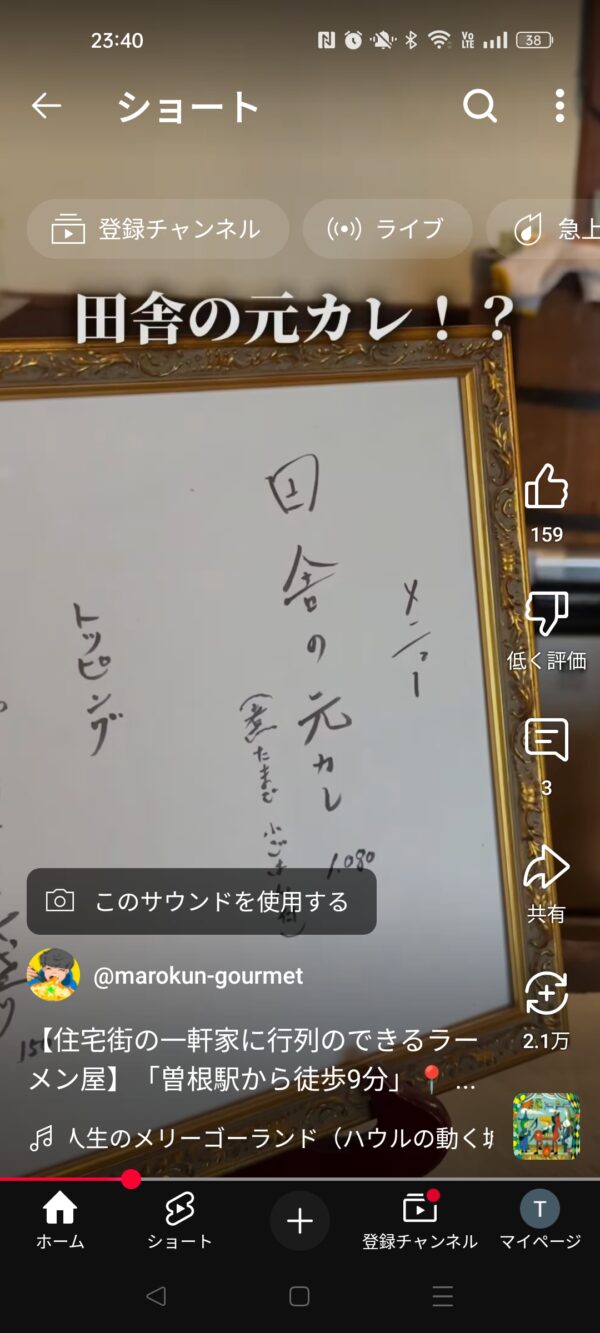 23:40
VO LTE
38
ショート
登録チャンネル
ライブ
急上
田舎の元カレ！？
メニュー
田舎の元カレ
1.080
トッピング
159
低く評価
3
共有
2.1万
このサウンドを使用する
@marokun-gourmet
【住宅街の一軒家に行列のできるラー
メン屋】「曽根駅から徒歩9分」📍 ...
人生のメリーゴーランド（ハウルの動く城
ホーム
ショート
登録チャンネル
T
マイページ